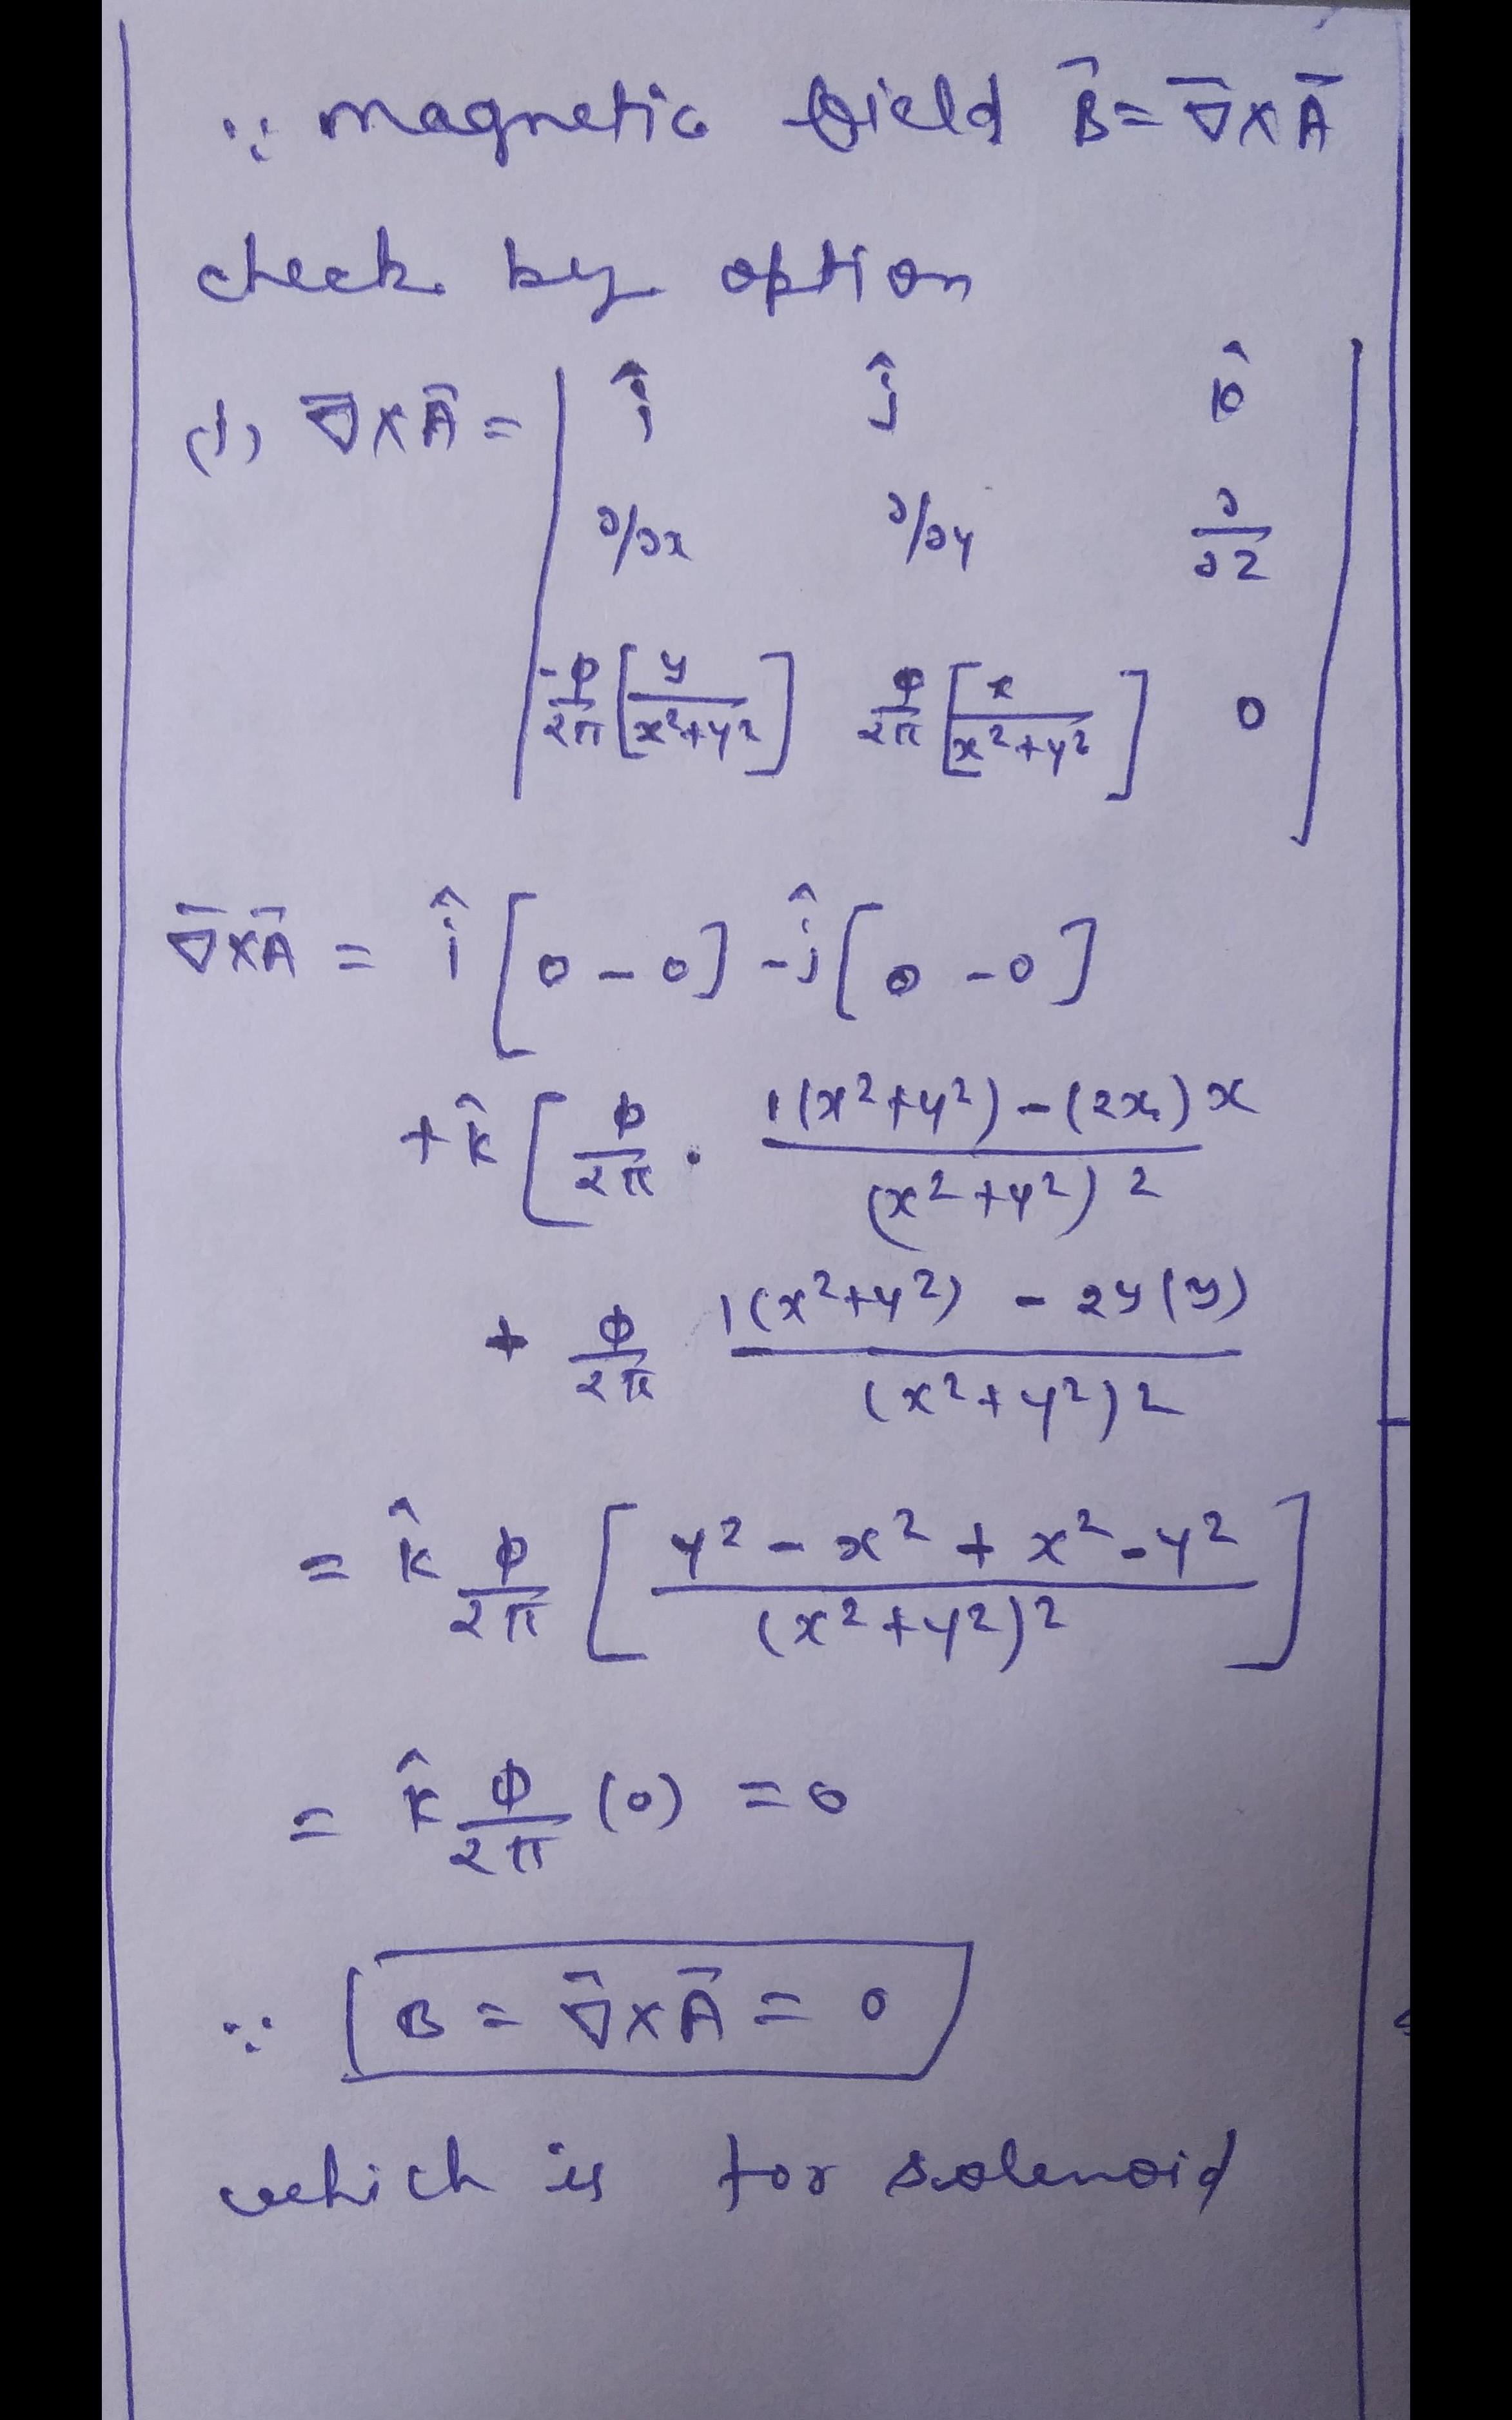 ∵ magnetic field B⃗ = ∇⃗ × A⃗
check by option
(1) ∇⃗ × A⃗ = | î ĵ k̂
∂/∂x ∂/∂y ∂/∂z
-ϕ/2π [y/(x²+y²)] ϕ/2π [x/(x²+y²)] 0 |
∇⃗ × A⃗ = î [0 - 0] - ĵ [0 - 0]
+ k̂ [ϕ/2π · (1(x²+y²) - (2x)x)/(x²+y²)²
+ ϕ/2π (1(x²+y²) - 2y(y))/(x²+y²)²
= k̂ ϕ/2π [(y² - x² + x² - y²)/(x²+y²)²]
= k̂ ϕ/2π (0) = 0
∵ B = ∇⃗ × A⃗ = 0
which is for solenoid